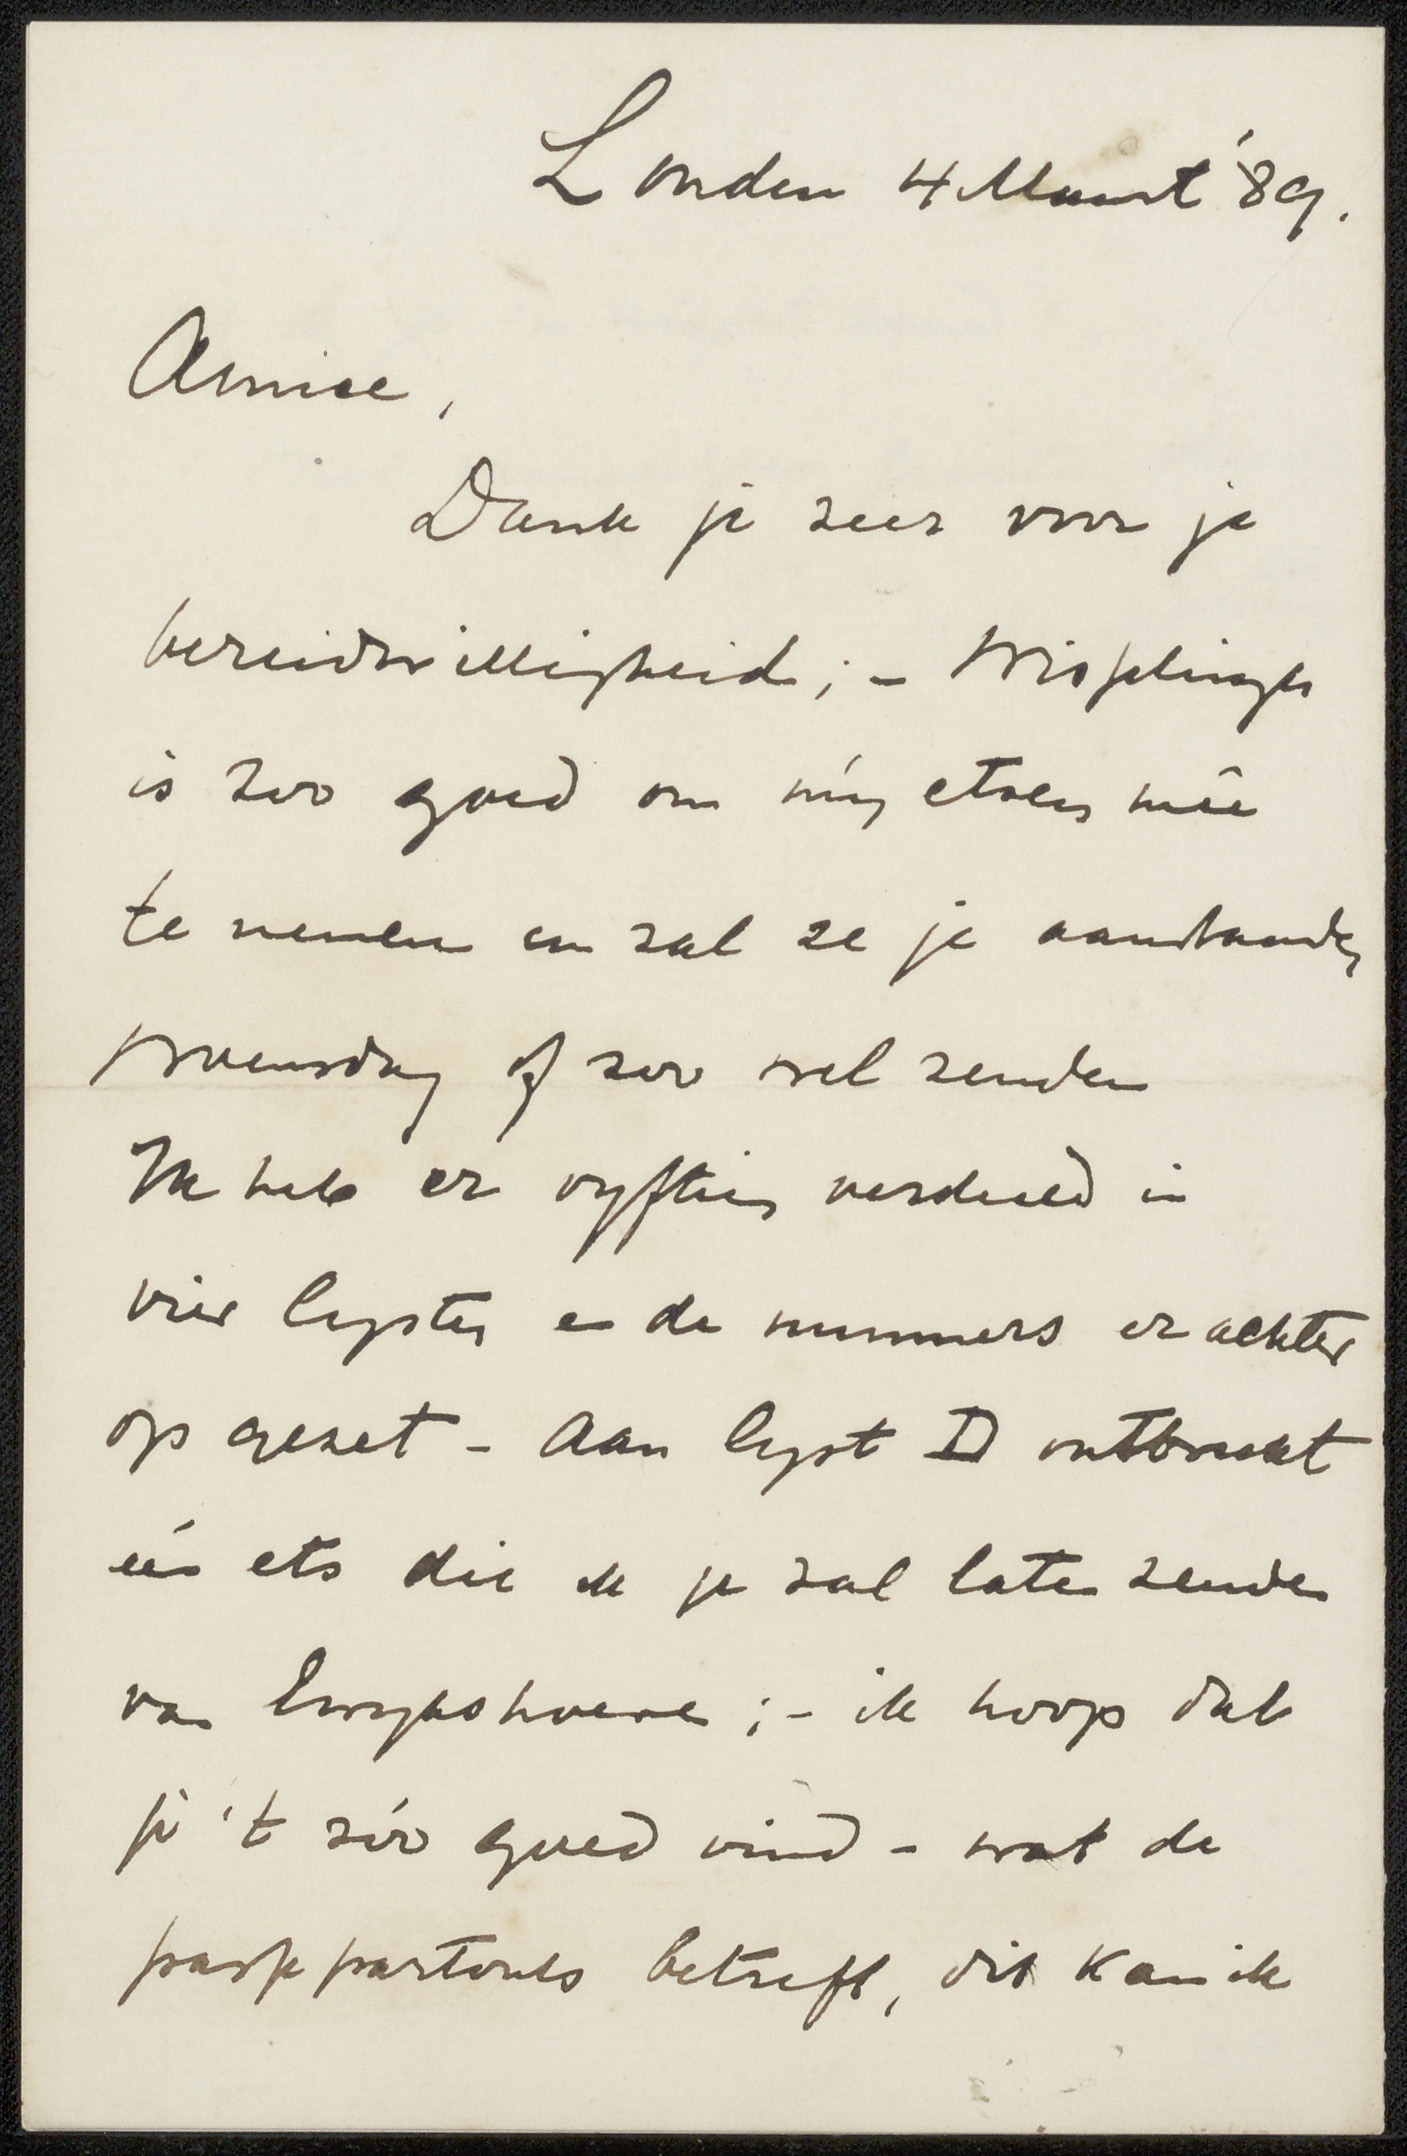 Londen 4 Maart '89.
Amice,
Dank je zeer voor je
bereidwilligheid; – Wisselingh
is zoo goed om mijn etsen mêe
te nemen en zal ze je aanstaanden
Woensdag of zoo wel zenden
Ik heb er vyftien verdeeld in
vier lysten en de nummers er achter
op gezet – Aan lyst D ontbreekt
één ets die ik je zal laten zenden
van Ewykshoeve; – ik hoop dat
je 't zóo goed vind – wat de
passepartouts betreft, dit kan ik